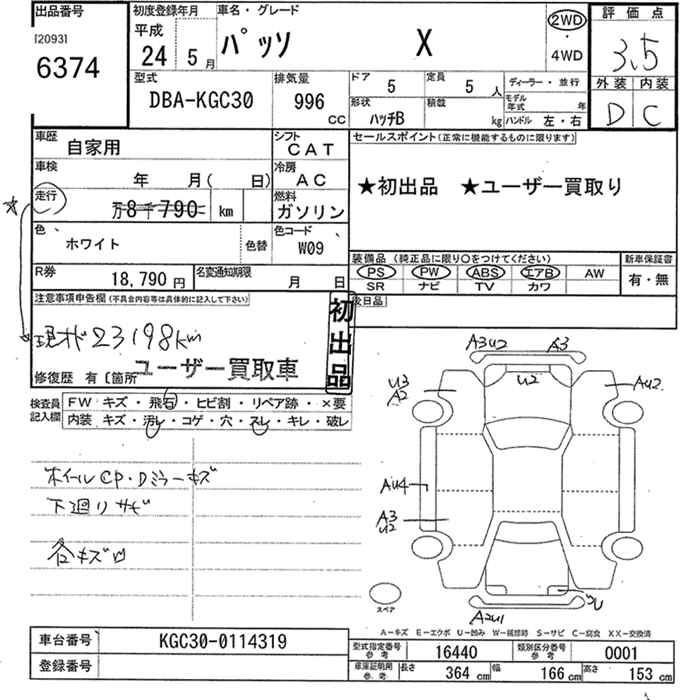 出品番号 初度登録年月 車名・グレード 評価点
[2093] 平成
6374 24 5月 パッソ X 2WD ・ 4WD 3.5
型式 排気量 ドア 定員 ディーラー・並行 外装 内装
DBA-KGC30 996 CC 5 5人 モデル年式 年 D C
形状 ハッチB 積載 kg ハンドル 左・右
車歴 自家用 シフト CAT セールスポイント(正常に機能するものに限ります)
車検 年 月( 日) 冷房 AC ★初出品 ★ユーザー買取り
☆ 走行 万8千790 km 燃料 ガソリン
色 ホワイト 色替 色コード W09
装備品(純正品に限り○をつけてください) 新車保証書
PS PW ABS エアB AW 有・無
SR ナビ TV カワ
R券 18,790円 名変通知期限 月 日 後日品
注意事項申告欄(不具合内容等は具体的に記入して下さい)
初出品
現状 23198km
ユーザー買取車
修復歴 有〔箇所
検査員記入欄 FW キズ・飛石・ヒビ割・リペア跡・×要
内装 キズ・汚レ・コゲ・穴・スレ・キレ・破レ
ホイールCP・Dミラーキズ
下廻りサビ
各キズ凹
A3U2 A3
U2
U3
A2
AU2
AU4
A3
U2
U
A2U1
スペア
A－キズ E－エクボ U－凹み W－補修跡 S－サビ C－腐食 XX－交換済
車台番号 KGC30-0114319
登録番号
型式指定番号 参考 16440 類別区分番号 参考 0001
車庫証明用 参考 長さ 364 cm 幅 166 cm 高さ 153 cm